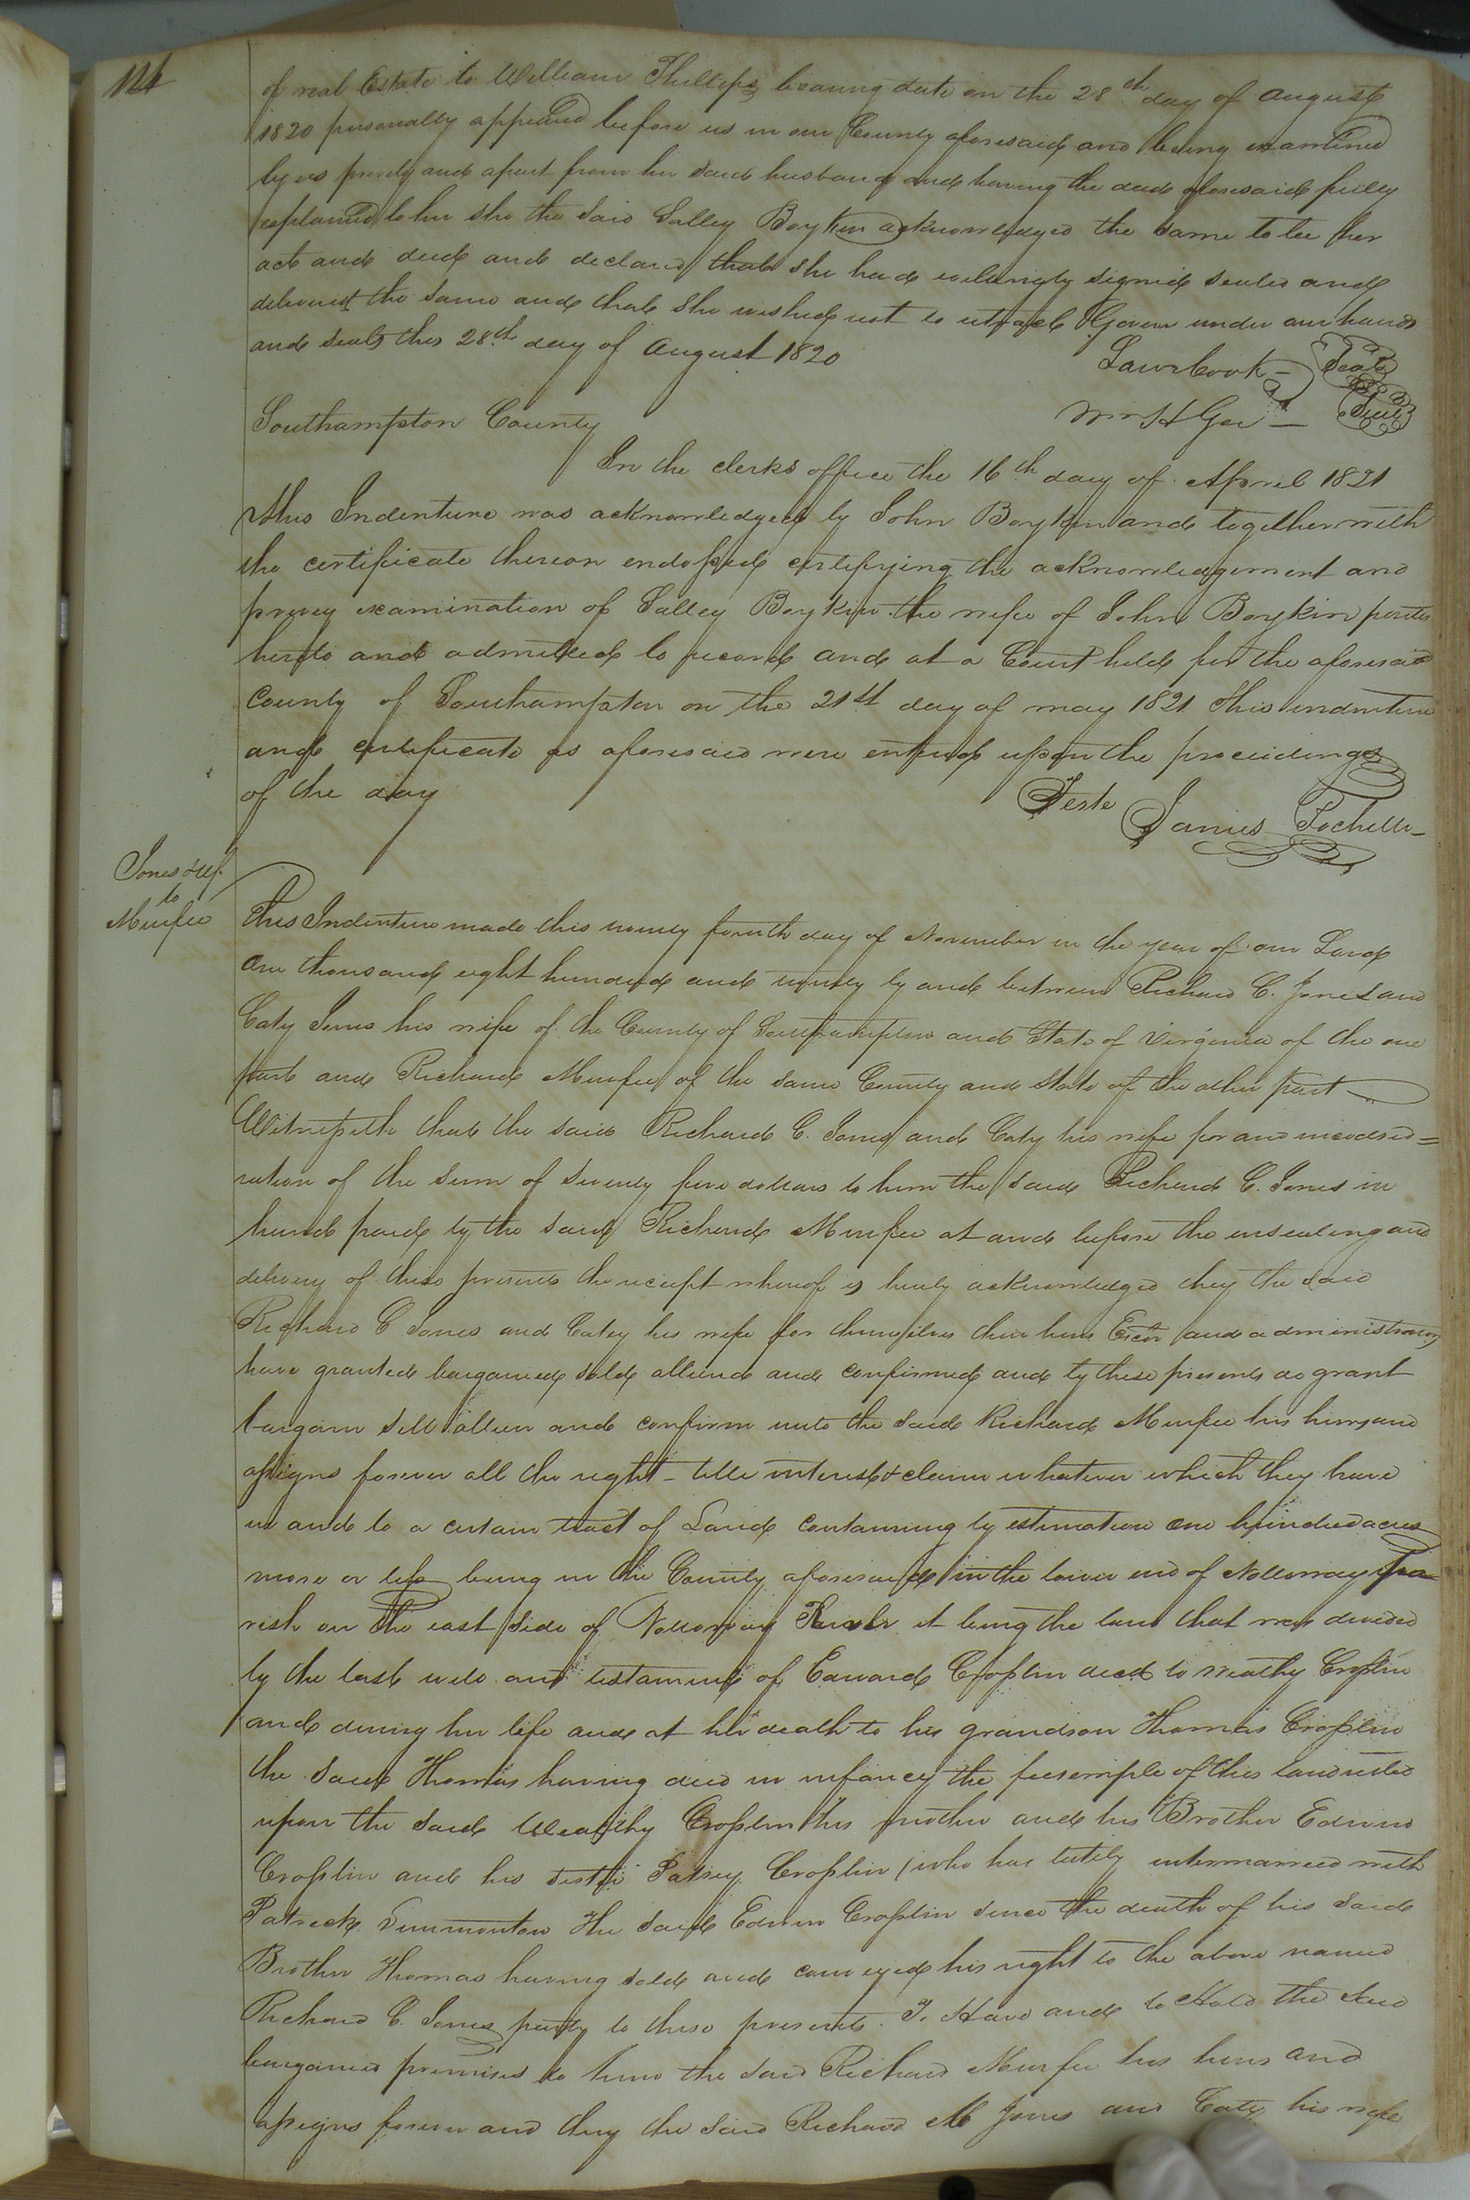 124
of real Estate to William Phillips bearing date on the 28th day of August
1820 personally appeared before us in our County aforesaid and being examined
by us privily and apart from her said husband and having the deed aforesaid fully
explained to her she the said Salley Boykin acknowledged the same to be her
act and deed and declared that she had willingly signed sealed and
delivered the same and that she wished not to retract Given under our hands
and seals this 28th day of August 1820
Laws Cook Seal
Wm H Gee Seal
Southampton County
In the clerks office the 16th day of April 1821
This Indenture was acknowledged by John Boykin and together with
the certificate thereon endorsed certifying the acknowledgement and
privey examination of Salley Boykin the wife of John Boykin parties
hereto and admitted to record and at a Court held for the aforesaid
County of Southampton on the 21st day of may 1821 This indenture
and certificate as aforesaid were entered upon the proceedings
of the day
Teste James Rochelle
Jones & Uf.
to
Murfee
This Indenture made this twenty fourth day of November in the year of our Lord
One thousand eight hundred and twenty by and between Richard C. Jones and
Caty Jones his wife of the County of Southampton and State of Virginia of the one
part and Richard Murfee of the same County and State of the other part
Witnesseth that the said Richard C. Jones and Caty his wife for and in consid=
ration of the sum of seventy five dollars to him the said Richard C. Jones in
hand paid by the said Richard Murfee at and before the ensealing and
delivery of these presents the receipt whereof is hereby acknowledged they the said
Richard C Jones and Catey his wife for themselves their heirs Exctr and administrators
have granted bargained sold aliend and confirmed and by these presents do grant
bargain sell alien and confirm unto the said Richard Murfee his heirs and
assigns forever all the right title interest & claim whatever which they have
in and to a certain tract of Land containing by estimation one hundred acres
more or less being in the County aforesaid in the lower end of Nottoway Pa
rish on the east side of Nottoway River it being the land that was devised
by the last will and testament of Edward Croslin decd to wealthy Croslin
and during her life and at her death to his grandson Thomas Croslin
the said Thomas having died in infancy the feesimple of this land vested
upon the said Wealthy Croslin his mother and his Brother Edwin
Croslin and his sister Patsey Croslin (who has lately intermarried with
Patrick Simmonton The said Edwin Croslin since the death of his said
Brother Thomas having sold and conveyed his right to the above named
Richard C. Jones party to these presents. To Have and to Hold the said
bargained premises to him the said Richard Murfee his heirs and
assigns forever and they the said Richard M Jones and Caty his wife